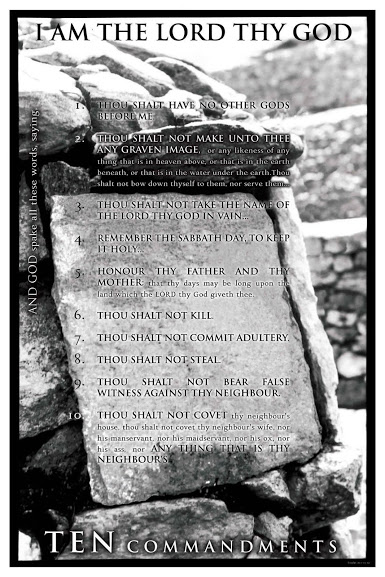 I AM THE LORD THY GOD
AND GOD spake all these words, saying,
1. THOU SHALT HAVE NO OTHER GODS
BEFORE ME
2. THOU SHALT NOT MAKE UNTO THEE
ANY GRAVEN IMAGE, or any likeness of any
thing that is in heaven above, or that is in the earth
beneath, or that is in the water under the earth.Thou
shalt not bow down thyself to them, nor serve them...
3. THOU SHALT NOT TAKE THE NAME OF
THE LORD THY GOD IN VAIN...
4. REMEMBER THE SABBATH DAY, TO KEEP
IT HOLY...
5. HONOUR THY FATHER AND THY
MOTHER: that thy days may be long upon the
land which the LORD thy God giveth thee.
6. THOU SHALT NOT KILL.
7. THOU SHALT NOT COMMIT ADULTERY.
8. THOU SHALT NOT STEAL.
9. THOU SHALT NOT BEAR FALSE
WITNESS AGAINST THY NEIGHBOUR.
10. THOU SHALT NOT COVET thy neighbour's
house, thou shalt not covet thy neighbour's wife, nor
his manservant, nor his maidservant, nor his ox, nor
his ass, nor ANY THING THAT IS THY
NEIGHBOUR'S.
TEN COMMANDMENTS